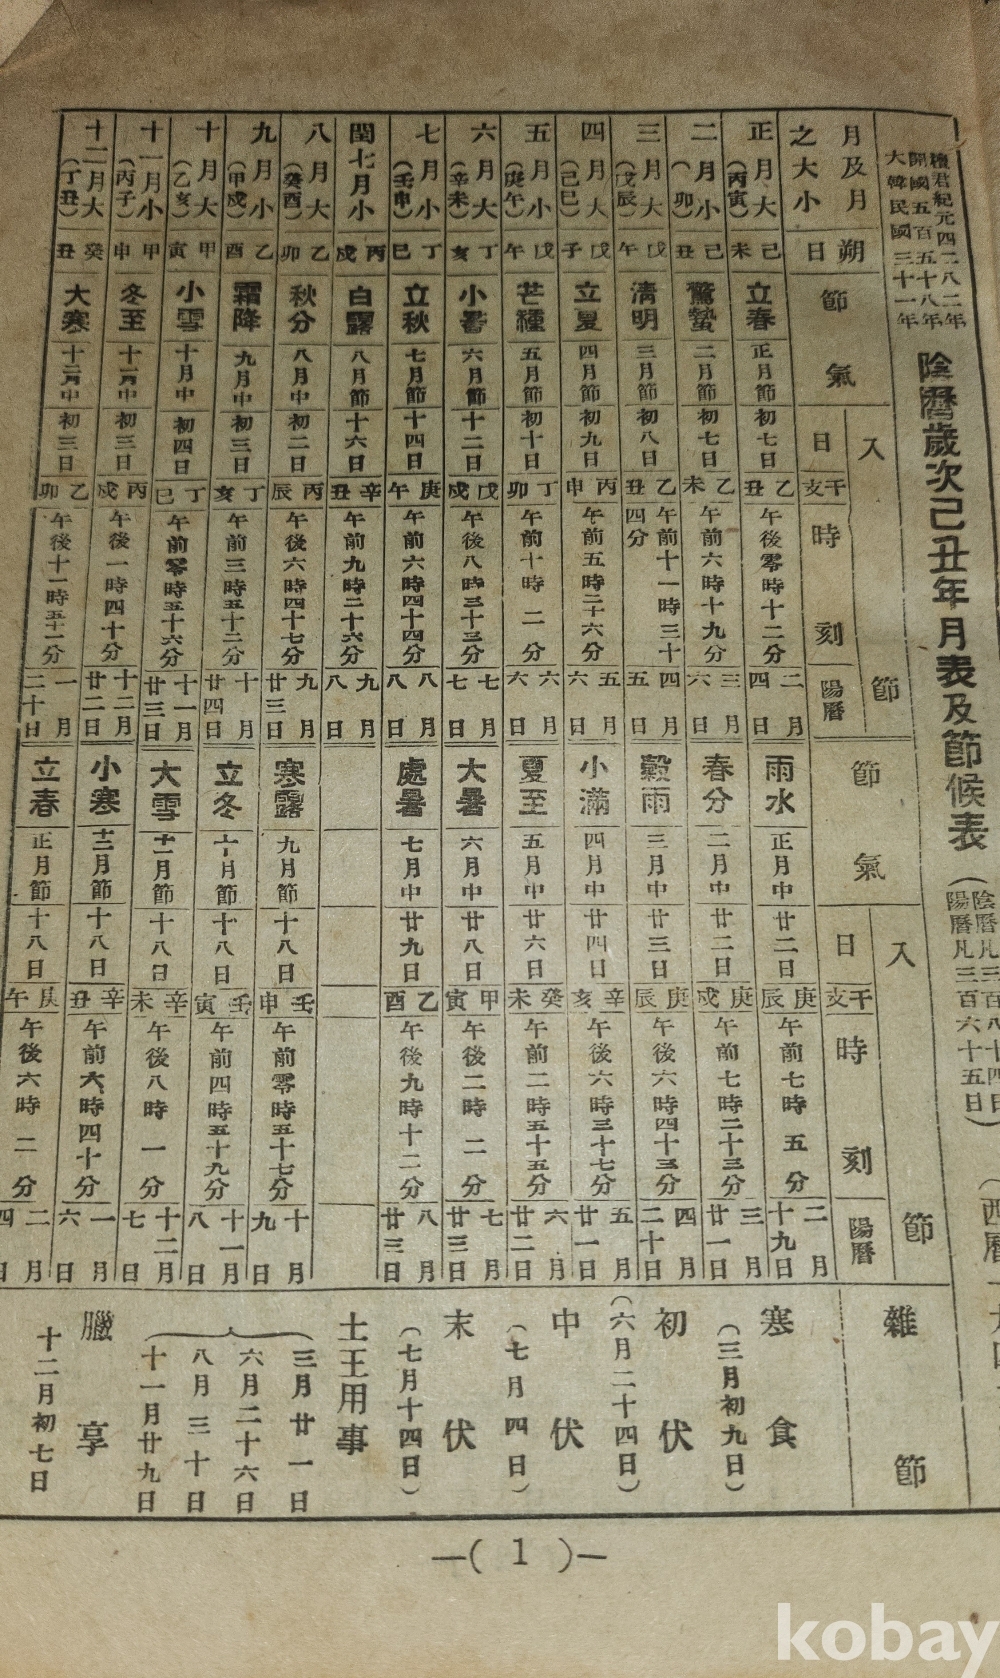 檀君紀元四二八二年
開國五百五十八年
大韓民國三十一年
陰曆歲次己丑年月表及節候表
陽曆凡三百六十五日)
月及月之大小
朔日
節氣
入節
日
干支
時刻
陽曆
節氣
入節
日
干支
時刻
陽曆
雜節
正月大(丙寅) 己未 立春 正月節 初七日 乙丑 午後零時十二分 二月四日 雨水 正月中 廿二日 庚辰 午前七時五分 二月十九日
二月小(卯) 己丑 驚蟄 二月節 初七日 乙未 午前六時十九分 三月六日 春分 二月中 廿二日 庚戌 午前七時二十三分 三月廿一日
三月大(戊辰) 戊午 淸明 三月節 初八日 乙丑 午前十一時三十四分 四月五日 穀雨 三月中 廿三日 庚辰 午後六時四十三分 四月二十日
四月大(己巳) 戊子 立夏 四月節 初九日 丙申 午前五時二十六分 五月六日 小滿 四月中 廿四日 辛亥 午後六時三十七分 五月廿一日
五月小(庚午) 戊午 芒種 五月節 初十日 丁卯 午前十時二分 六月六日 夏至 五月中 廿六日 癸未 午前二時五十五分 六月廿二日
六月大(辛未) 丁亥 小暑 六月節 十二日 戊戌 午後八時三十三分 七月七日 大暑 六月中 廿八日 甲寅 午後二時二分 七月廿三日
七月小(壬申) 丁巳 立秋 七月節 十四日 庚午 午前六時四十四分 八月八日 處暑 七月中 廿九日 乙酉 午後九時十二分 八月廿三日
閏七月小 丙戌 白露 八月節 十六日 辛丑 午前九時二十六分 九月八日
八月大(癸酉) 乙卯 秋分 八月中 初二日 丙辰 午後六時四十七分 九月廿三日 寒露 九月節 十八日 壬申 午前零時五十七分 十月九日
九月小(甲戌) 乙酉 霜降 九月中 初三日 丁亥 午前三時五十二分 十月廿四日 立冬 十月節 十八日 壬寅 午前四時五十九分 十一月八日
十月大(乙亥) 甲寅 小雪 十月中 初四日 丁巳 午前零時五十六分 十一月廿三日 大雪 十一月節 十八日 辛未 午後八時一分 十二月七日
十一月小(丙子) 甲申 冬至 十一月中 初三日 丙戌 午後一時四十分 十二月廿二日 小寒 十二月節 十八日 辛丑 午前六時四十分 一月六日
十二月大(丁丑) 癸丑 大寒 十二月中 初三日 乙卯 午後十一時五十一分 一月二十日 立春 正月節 十八日 庚午 午後六時二分 二月四日
寒食(三月初九日)
初伏(六月二十四日)
中伏(七月四日)
末伏(七月十四日)
土王用事
三月廿一日
六月二十六日
八月三十日
十一月廿九日
臘享
十二月初七日
—( 1 )—
kobay